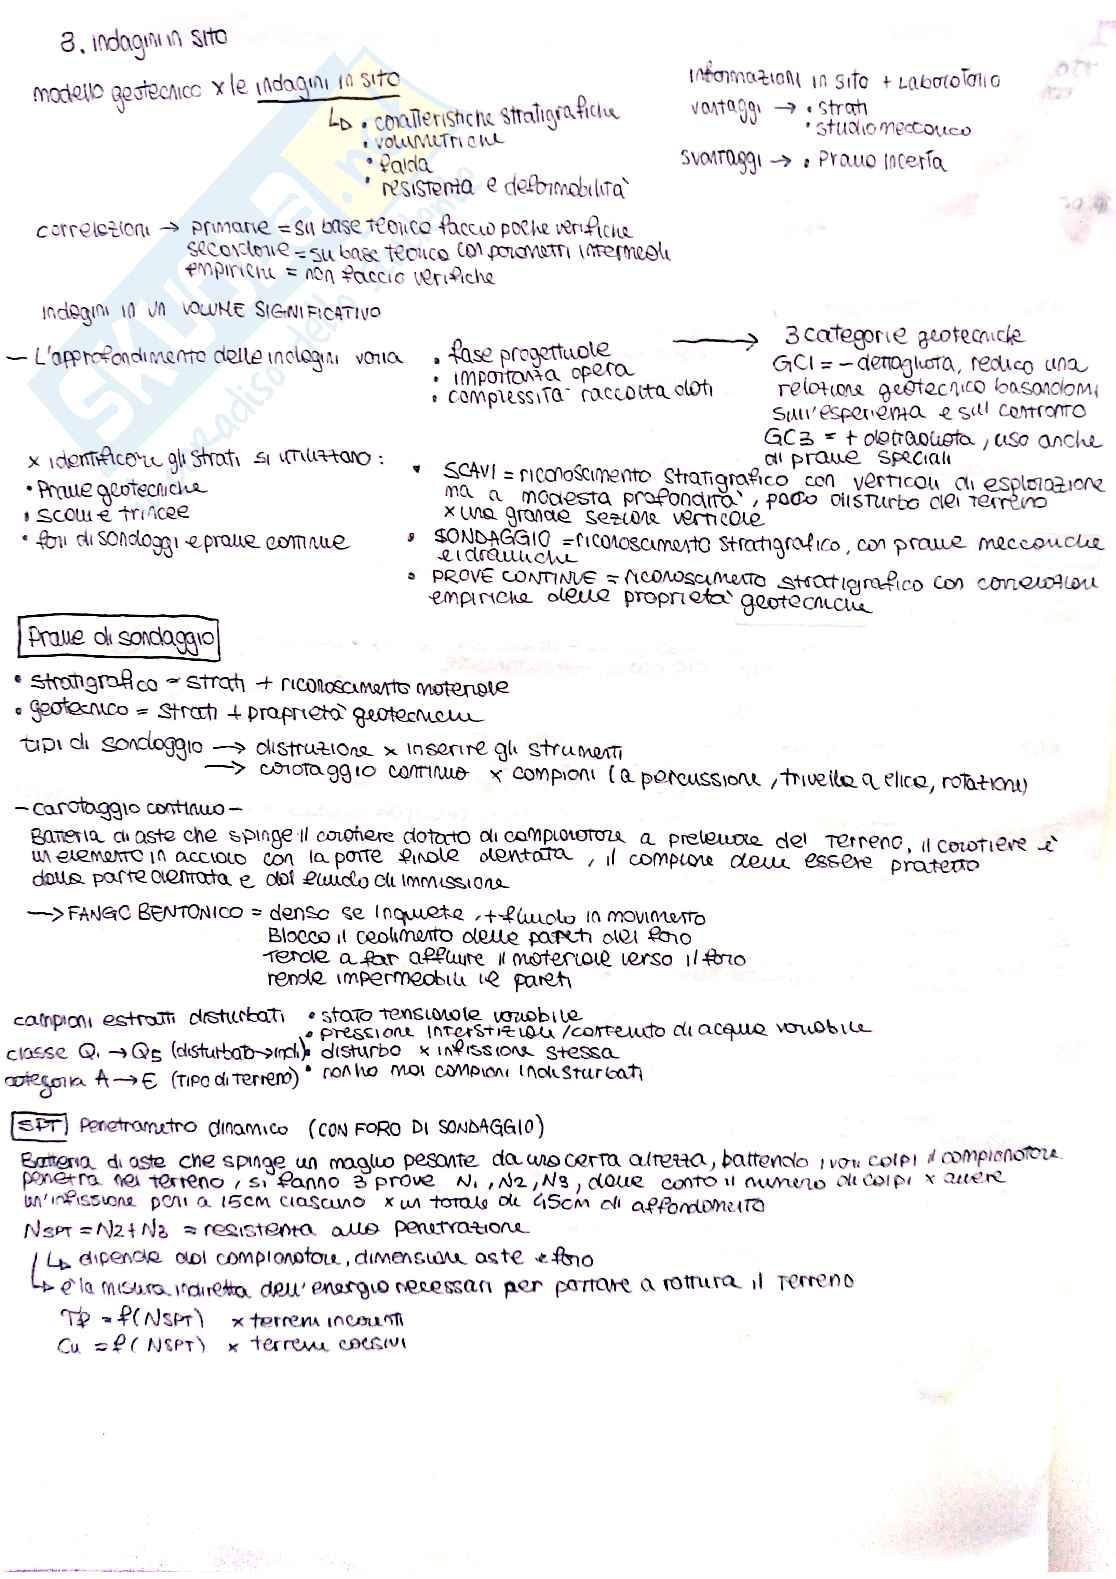 8. indagini in sito
modello geotecnico x le indagini in sito
↳ • caratteristiche stratigrafiche
• volumetriche
• falda
• resistenza e deformabilità
informazioni in sito + laboratorio
vantaggi → • strati
• studio meccanico
svantaggi → • prova incerta
correlazioni → primarie = su base teorico faccio poche verifiche
secondarie = su base teorico con parametri intermedi
empiriche = non faccio verifiche
indagini in un VOLUME SIGNIFICATIVO
– L'approfondimento delle indagini varia
• fase progettuale
• importanza opera
• complessità raccolta dati
→ 3 categorie geotecniche
GC1 = – dettagliata, redico una
relazione geotecnico basandomi
sull'esperienza e sul confronto
GC3 = + dettagliata, uso anche
di prove speciali
x identificare gli strati si utilizzano:
• Prove geotecniche
• scavi e trincee
• fori di sondaggi e prove continue
• SCAVI = riconoscimento stratigrafico con verticali di esplorazione
ma a modesta profondità, poco disturbo del terreno
x una grande sezione verticale
• SONDAGGIO = riconoscimento stratigrafico, con prove meccaniche
e idrauliche
• PROVE CONTINUE = riconoscimento stratigrafico con correlazioni
empiriche delle proprietà geotecniche
Prove di sondaggio
• stratigrafico = strati + riconoscimento materiale
• geotecnico = strati + proprietà geotecniche
tipi di sondaggio → distruzione x inserire gli strumenti
→ carotaggio continuo x campioni (a percussione, trivella a elica, rotazione)
– carotaggio continuo –
Batteria di aste che spinge il carotiere dotato di campionatore a prelevare del terreno, il carotiere è
un elemento in acciaio con la parte finale dentata, il campione deve essere protetto
dalla parte dentata e dal fluido di immissione
→ FANGO BENTONICO = denso se in quiete, + fluido in movimento
Blocco il cedimento delle pareti del foro
Tende a far affluire il materiale verso il foro
rende impermeabili le pareti
campioni estratti disturbati • stato tensionale variabile
• pressione interstiziali/contenuto di acqua variabile
classe Q1 → Q5 (disturbato → indi) • disturbo x infissione stessa
categoria A → E (tipo di terreno) • non ho mai campioni indisturbati
SPT Penetrometro dinamico (CON FORO DI SONDAGGIO)
Batteria di aste che spinge un maglio pesante da una certa altezza, battendo i vari colpi il campionatore
penetra nel terreno, si fanno 3 prove N1, N2, N3, dove conto il numero di colpi x avere
un'infissione pari a 15cm ciascuno x un totale di 45cm di affondamento
NSPT = N2+N3 = resistenza alla penetrazione
↳ dipende dal campionatore, dimensione aste e foro
↳ è la misura indiretta dell'energia necessari per portare a rottura il terreno
= f(NSPT) x terreni incoerenti
Cu = f(NSPT) x terreni coesivi